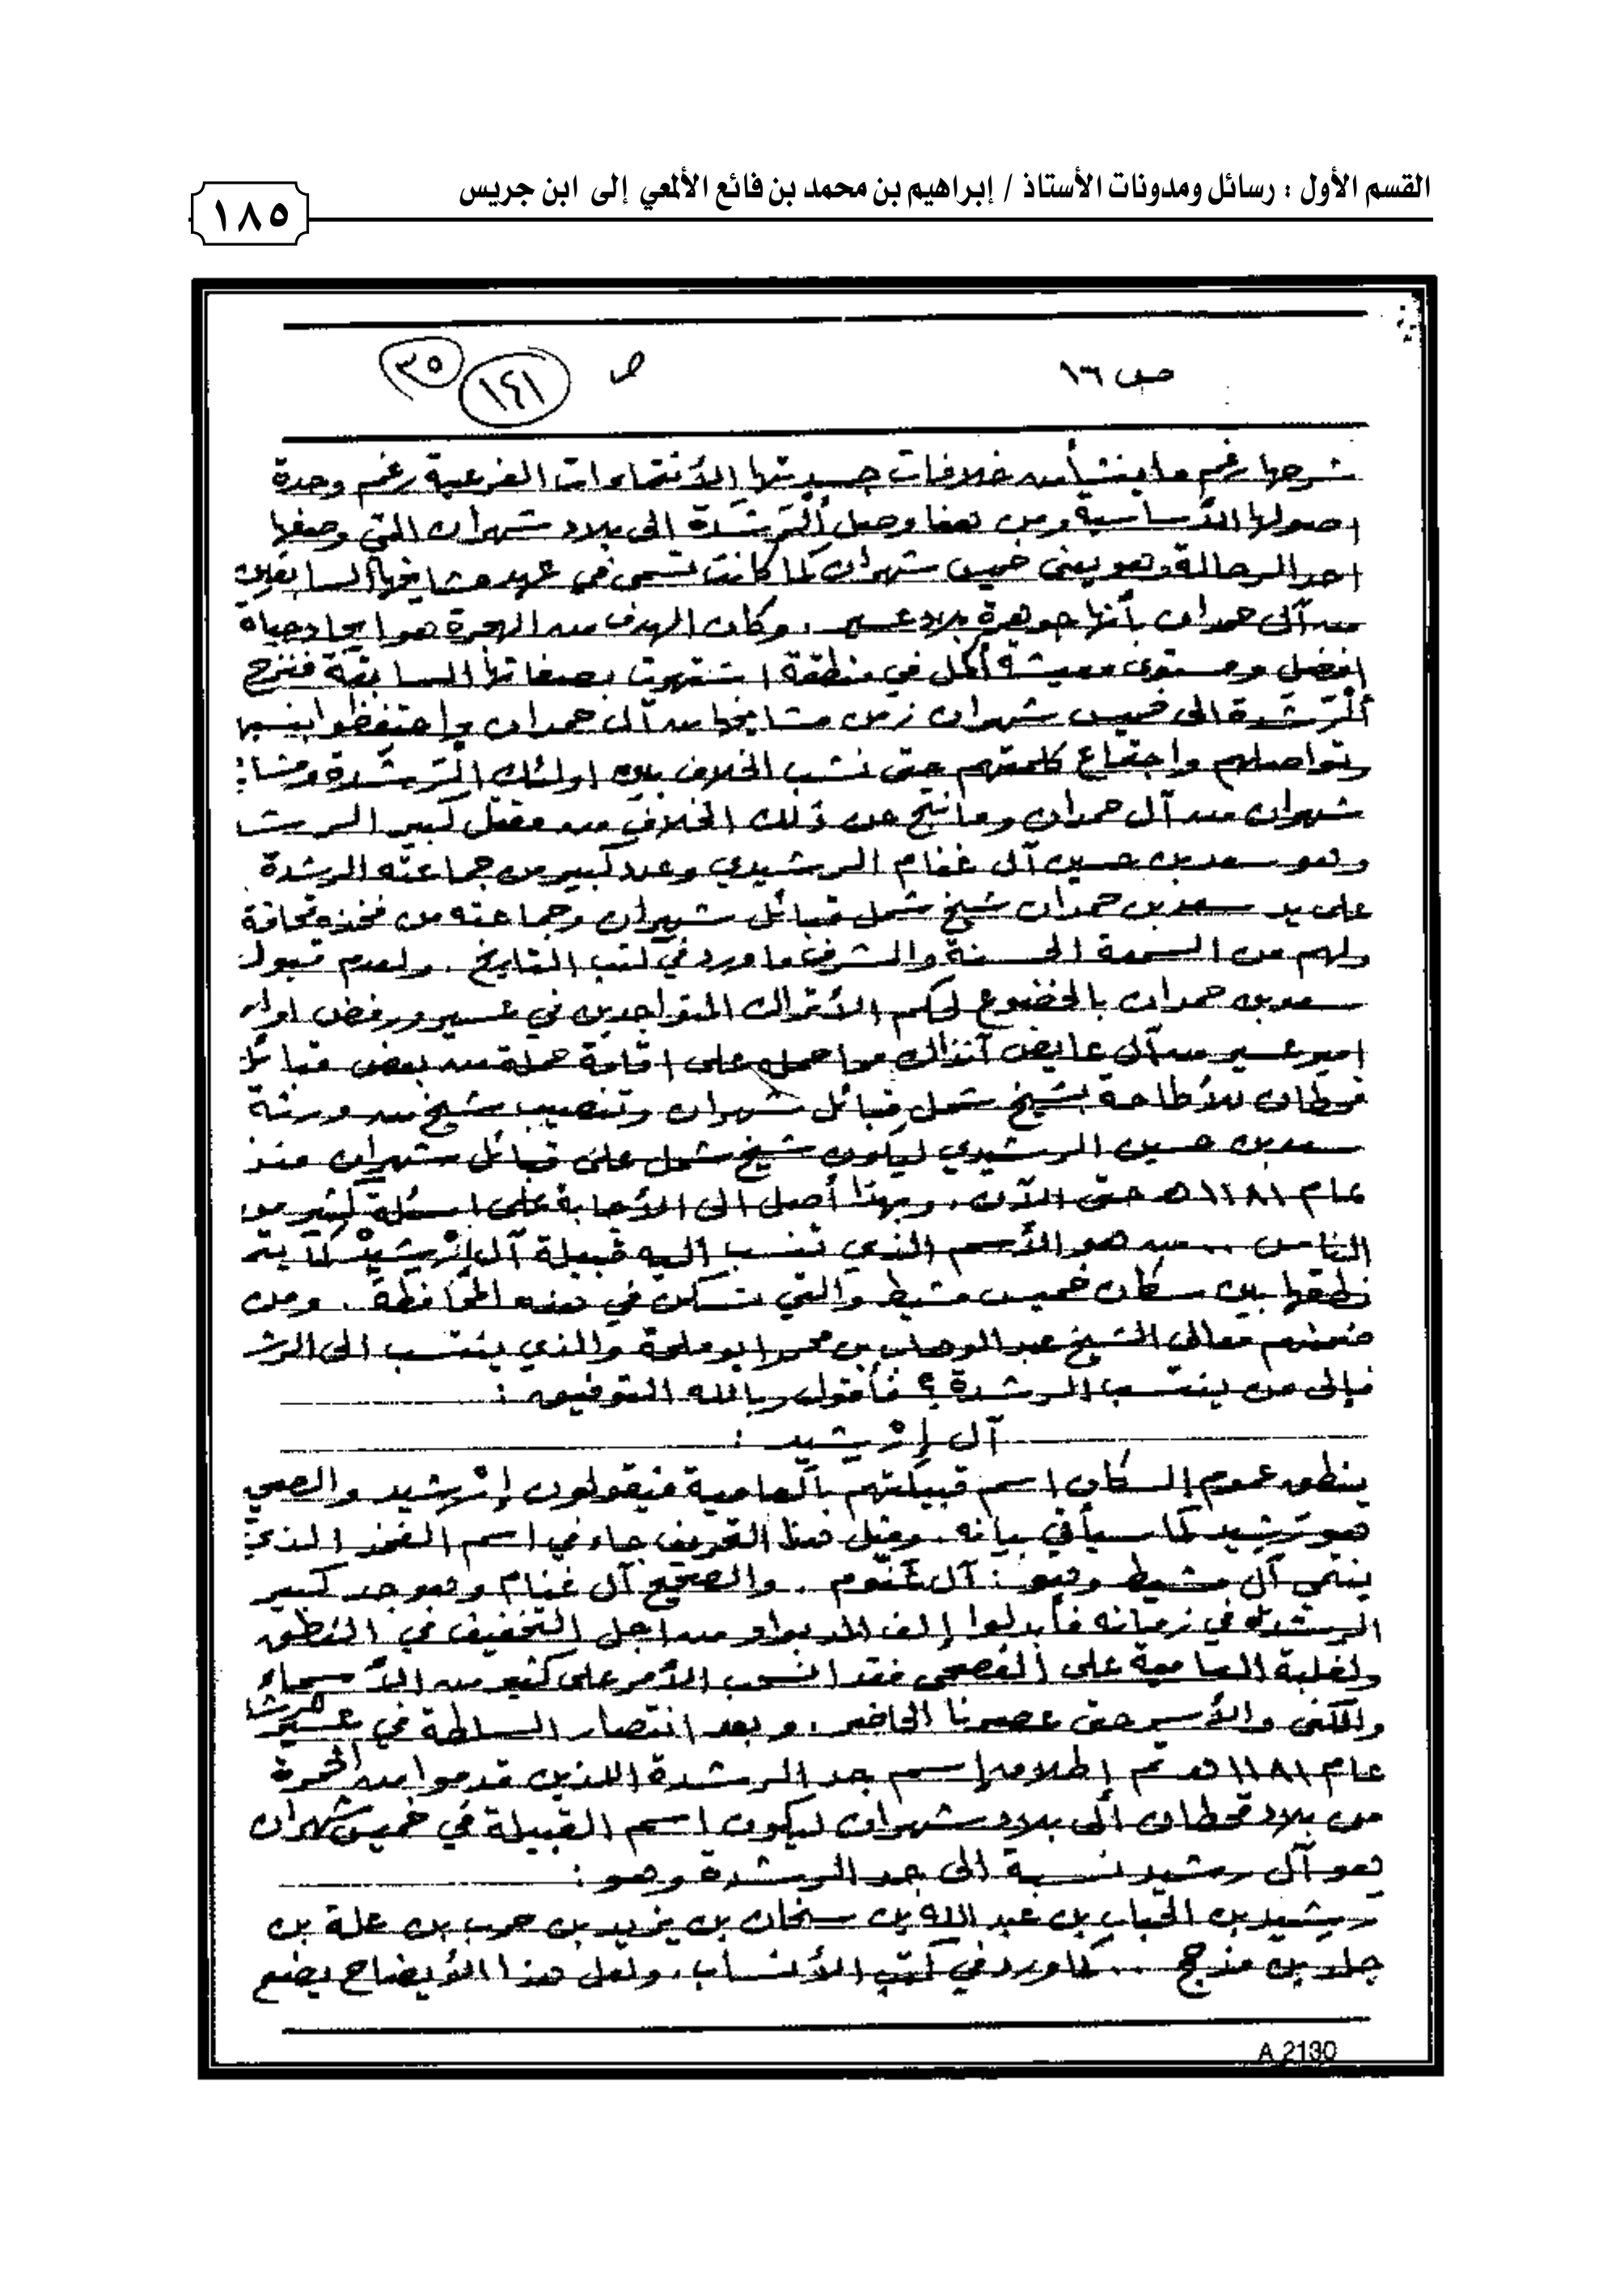 القسم الأول : رسائل ومدونات الأستاذ / إبراهيم بن محمد بن فائع الألمعي إلى ابن جريس
١٨٥
ص ١٦
ص ١٤١ ٣٥
شرحها رغم ما ينشأ من خلافات جسدتها الأنتماءات الفرعية رغم وحدة
اصولها الأساسية ومن هنا وصل ألرشدة الى بلاد شهران التي وصفها
احد الرحالة وهو يعني خميس شهران كما كانت تسمى في عهد مشايخها السابقين
من آل حمدان بأنها جوهرة بلاد عسير . وكان الهدف من الهجرة هو ايجاد حياة
افضل ومستوى معيشة أكمل في منطقة اشتهرت بصفاتها السابقة فنزح
ألرشدة الى خميس شهران زمن مشايخها من آل حمدان واحتفظوا بنسبها
وتواصلهم واجتماع كلمتهم حتى نشب الخلاف بين اولئك الرشدة ومشا
شهران من آل حمدان وما نتج عن ذلك الخلاف من مقتل كبير الر
وهو سعد بن حسين آل غنام الرشيدي وعدد كبير من جماعته الرشدة
على يد سعد بن حمدان شيخ شمل قبائل شهران وجماعته من فخذه
ولهم من السمعة الحسنة والشرف ما ورد في كتب التاريخ . ولعدم قبول
سعد بن حمدان بالخضوع لحكم الأتراك المتواجدين في عسير ورفض
امير عسير من آل عايض آنذاك على اقامة حملة من بعض قبائل
قحطان للأطاحة بشيخ شمل قبائل شهران وتنصيب شيخ من ورثة
سعد بن حسين الرشيدي ليكون شيخ شمل على قبائل شهران منذ
عام ١١٨١هـ حتى الآن . وبهذا أصل الى الأجابة على اسئلة كثير من
الناس .. من هو الأسم الذي تنسب اليه قبيلة آل إرْشيدْ كما يتم
نطقها بين سكان خميس مشيط والتي تسكن في هذه المحافظة . ومن
ضمنهم معالي الشيخ عبد الوهاب بن محمد ابو ملحة والذي ينتسب الى الرشـ
فإلى من ينتسب الرشدة ؟ فأقول وبالله التوفيق :
آل إرْشيد :
ينطق عموم السكان اسم قبيلتهم بالعامية فيقولون إرْشيد والصحيح
هو رشيد كما سيأتي بيانه . ومثل هذا التحريف جاء في اسم الفخذ الذي
ينتمي آل مشيط وهو : آل غنّوم . والصحيح آل غنام وهو جد كبير
الرشدة في زمانه فأبدلوا إلف المد بواو من اجل التخفيف في النطق
ولغلبة العامية على الفصحى فقد انسحب الأمر على كثير من الأسماء
والكنى والأسر حتى عصرنا الحاضر . وبعد انتصار السلطة في عسير
عام ١١٨١ هـ تم إطلاق إسم جد الرشدة اللذين قدموا من الحمرة
من بلاد قحطان ألى بلاد شهران ليكون اسم القبيلة في خميس شهران
هو آل رشيد نسبة الى جد الرشدة وهو :
رشيد بن الحباب بن عبد الله بن سنحان بن يزيد بن حرب بن علة بن
جلد بن مذحج .. كما ورد في كتب الأنساب . ولعل هذا الأيضاح يضع
A 2130